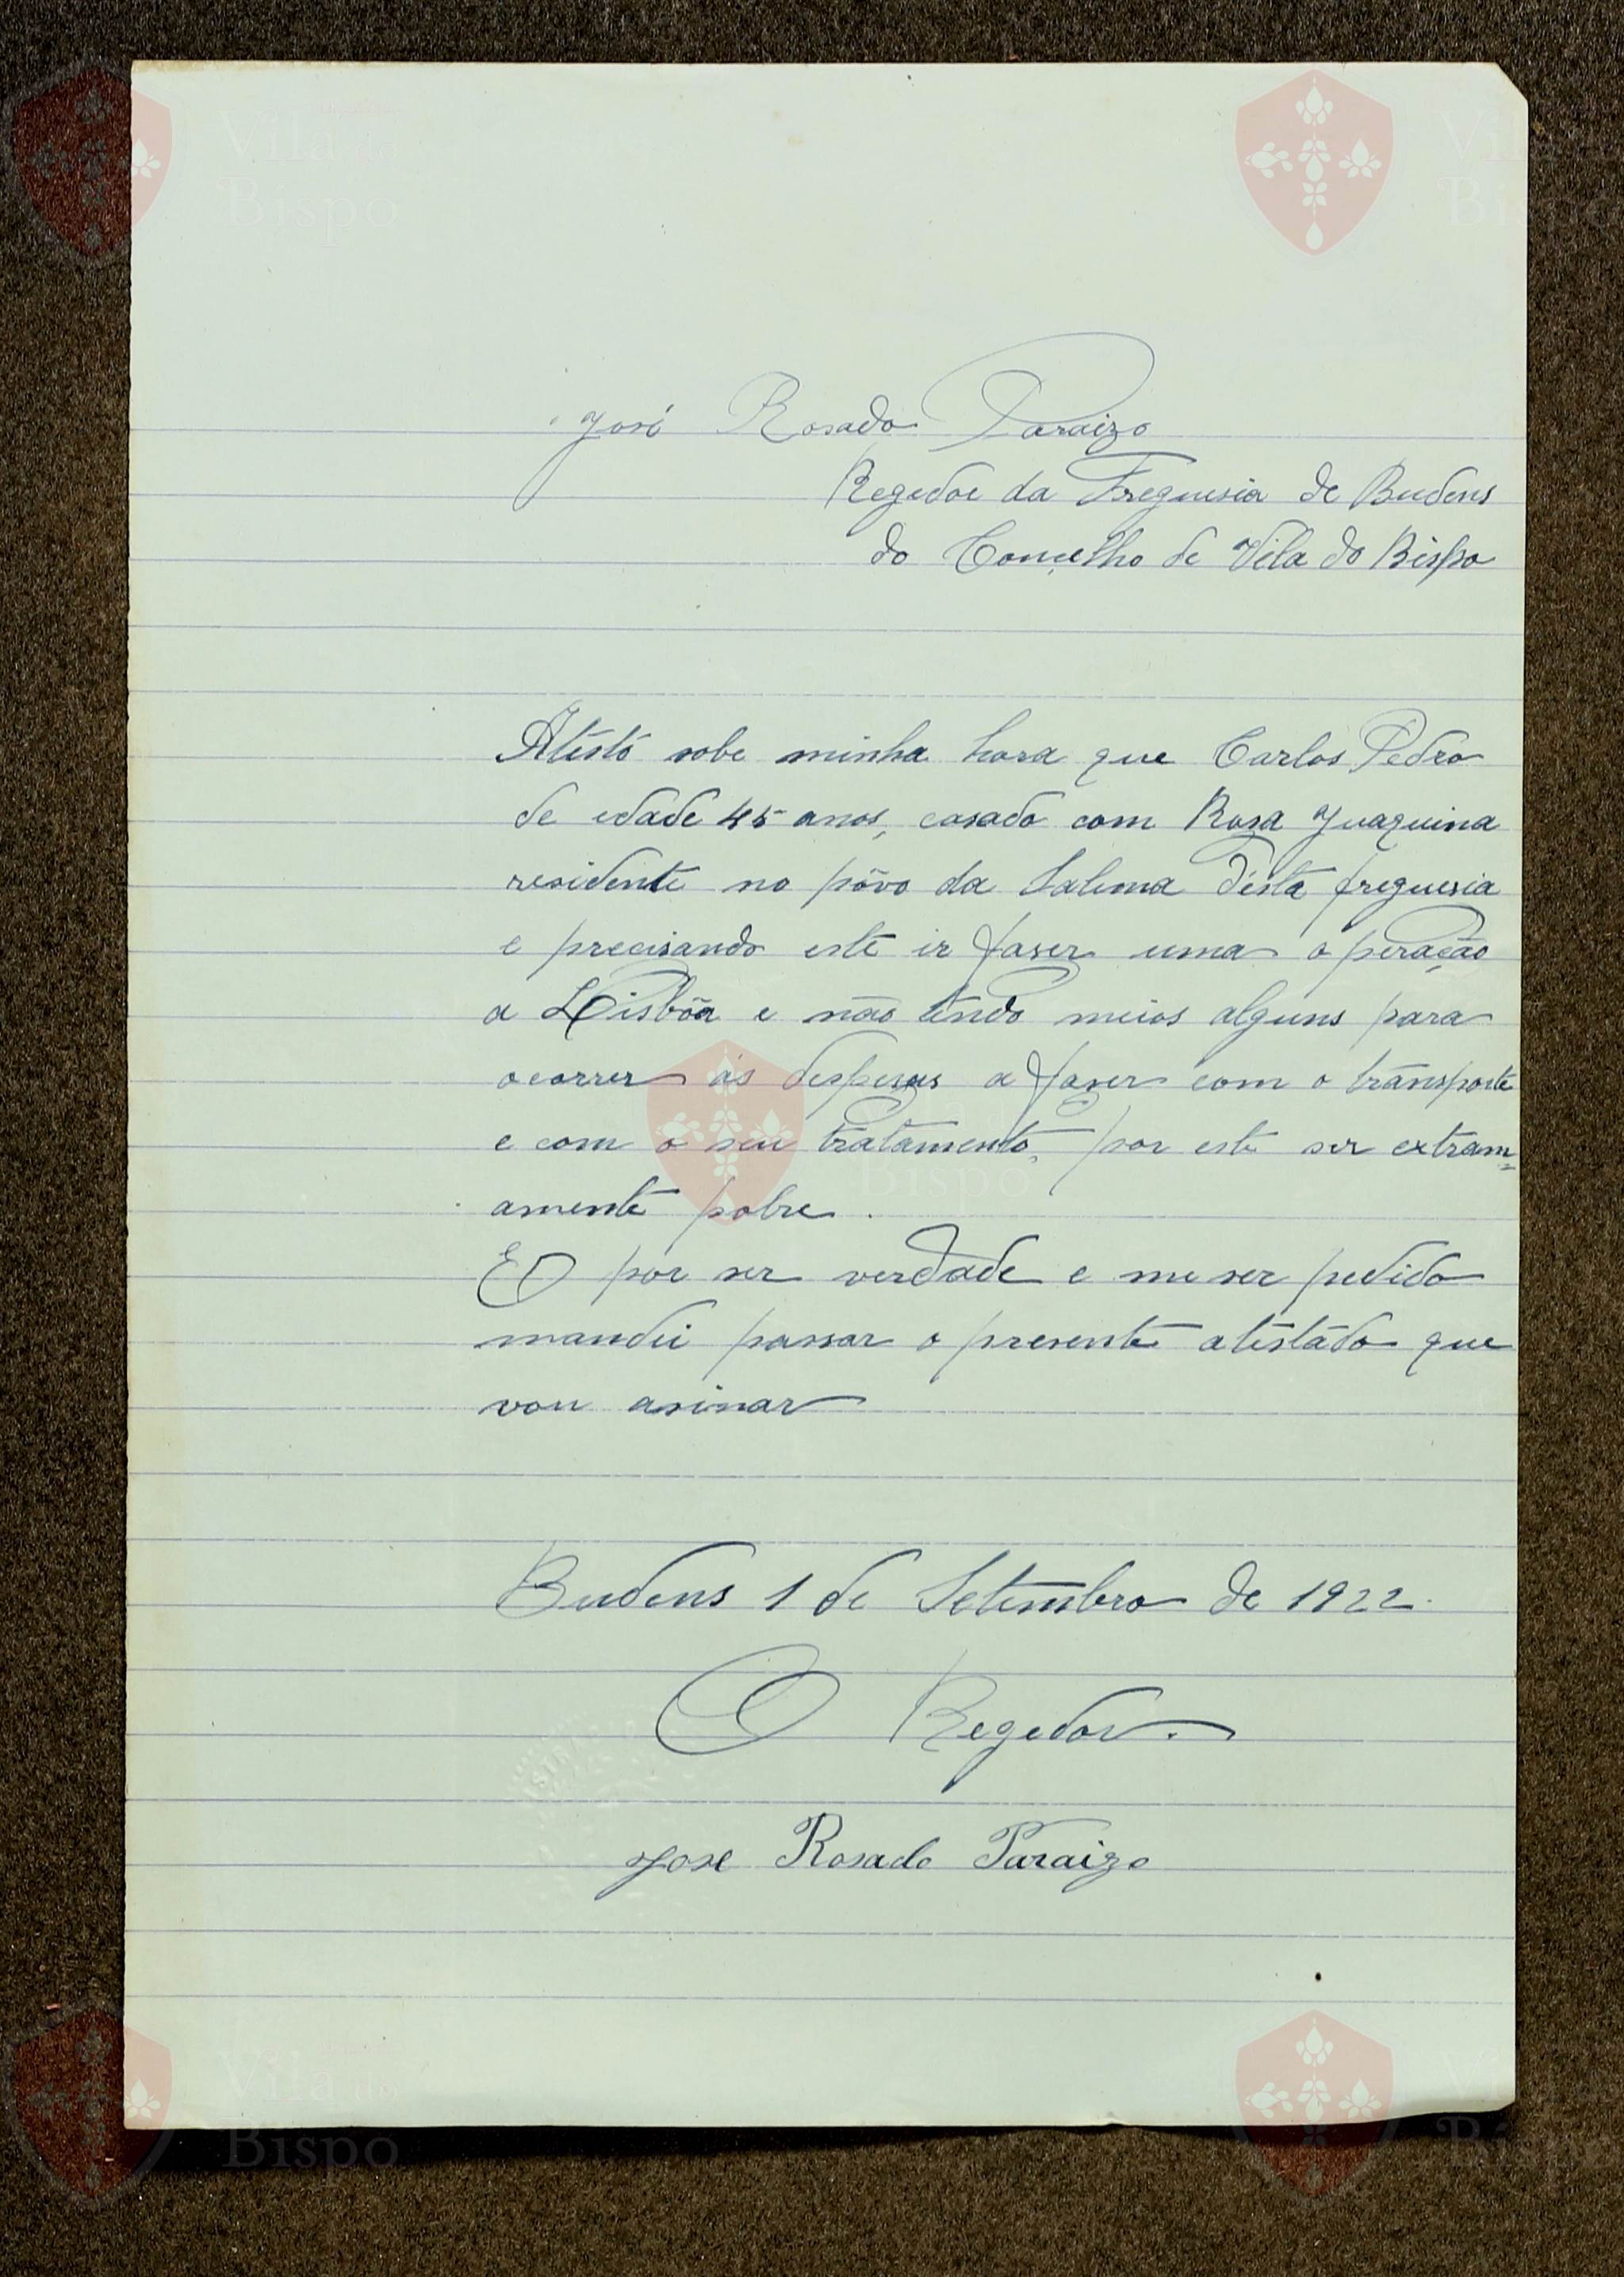 José Rosado Paraizo
Regedor da Freguesia de Budens
do Conçelho de Vila do Bispo
Atesto sobe minha hora que Carlos Pedro
de edade 45 anos, casado com Rosa Juaquina
residente no pôvo da Salema d'esta freguesia
e precisando este ir faser uma operação
a Lisbôa e não tendo meios alguns para
ocorrer ás despesas a faser com o transporte
e com o seu tratamento, por este ser extram=
amente pobre.
E por ser verdade e me ser pedido
mandei passar o presente atestado que
vou asinar
Budens 1 de Setembro de 1922.
O Regedor.
Jose Rosado Paraizo
Vila do
Bispo
Vila do
Bispo